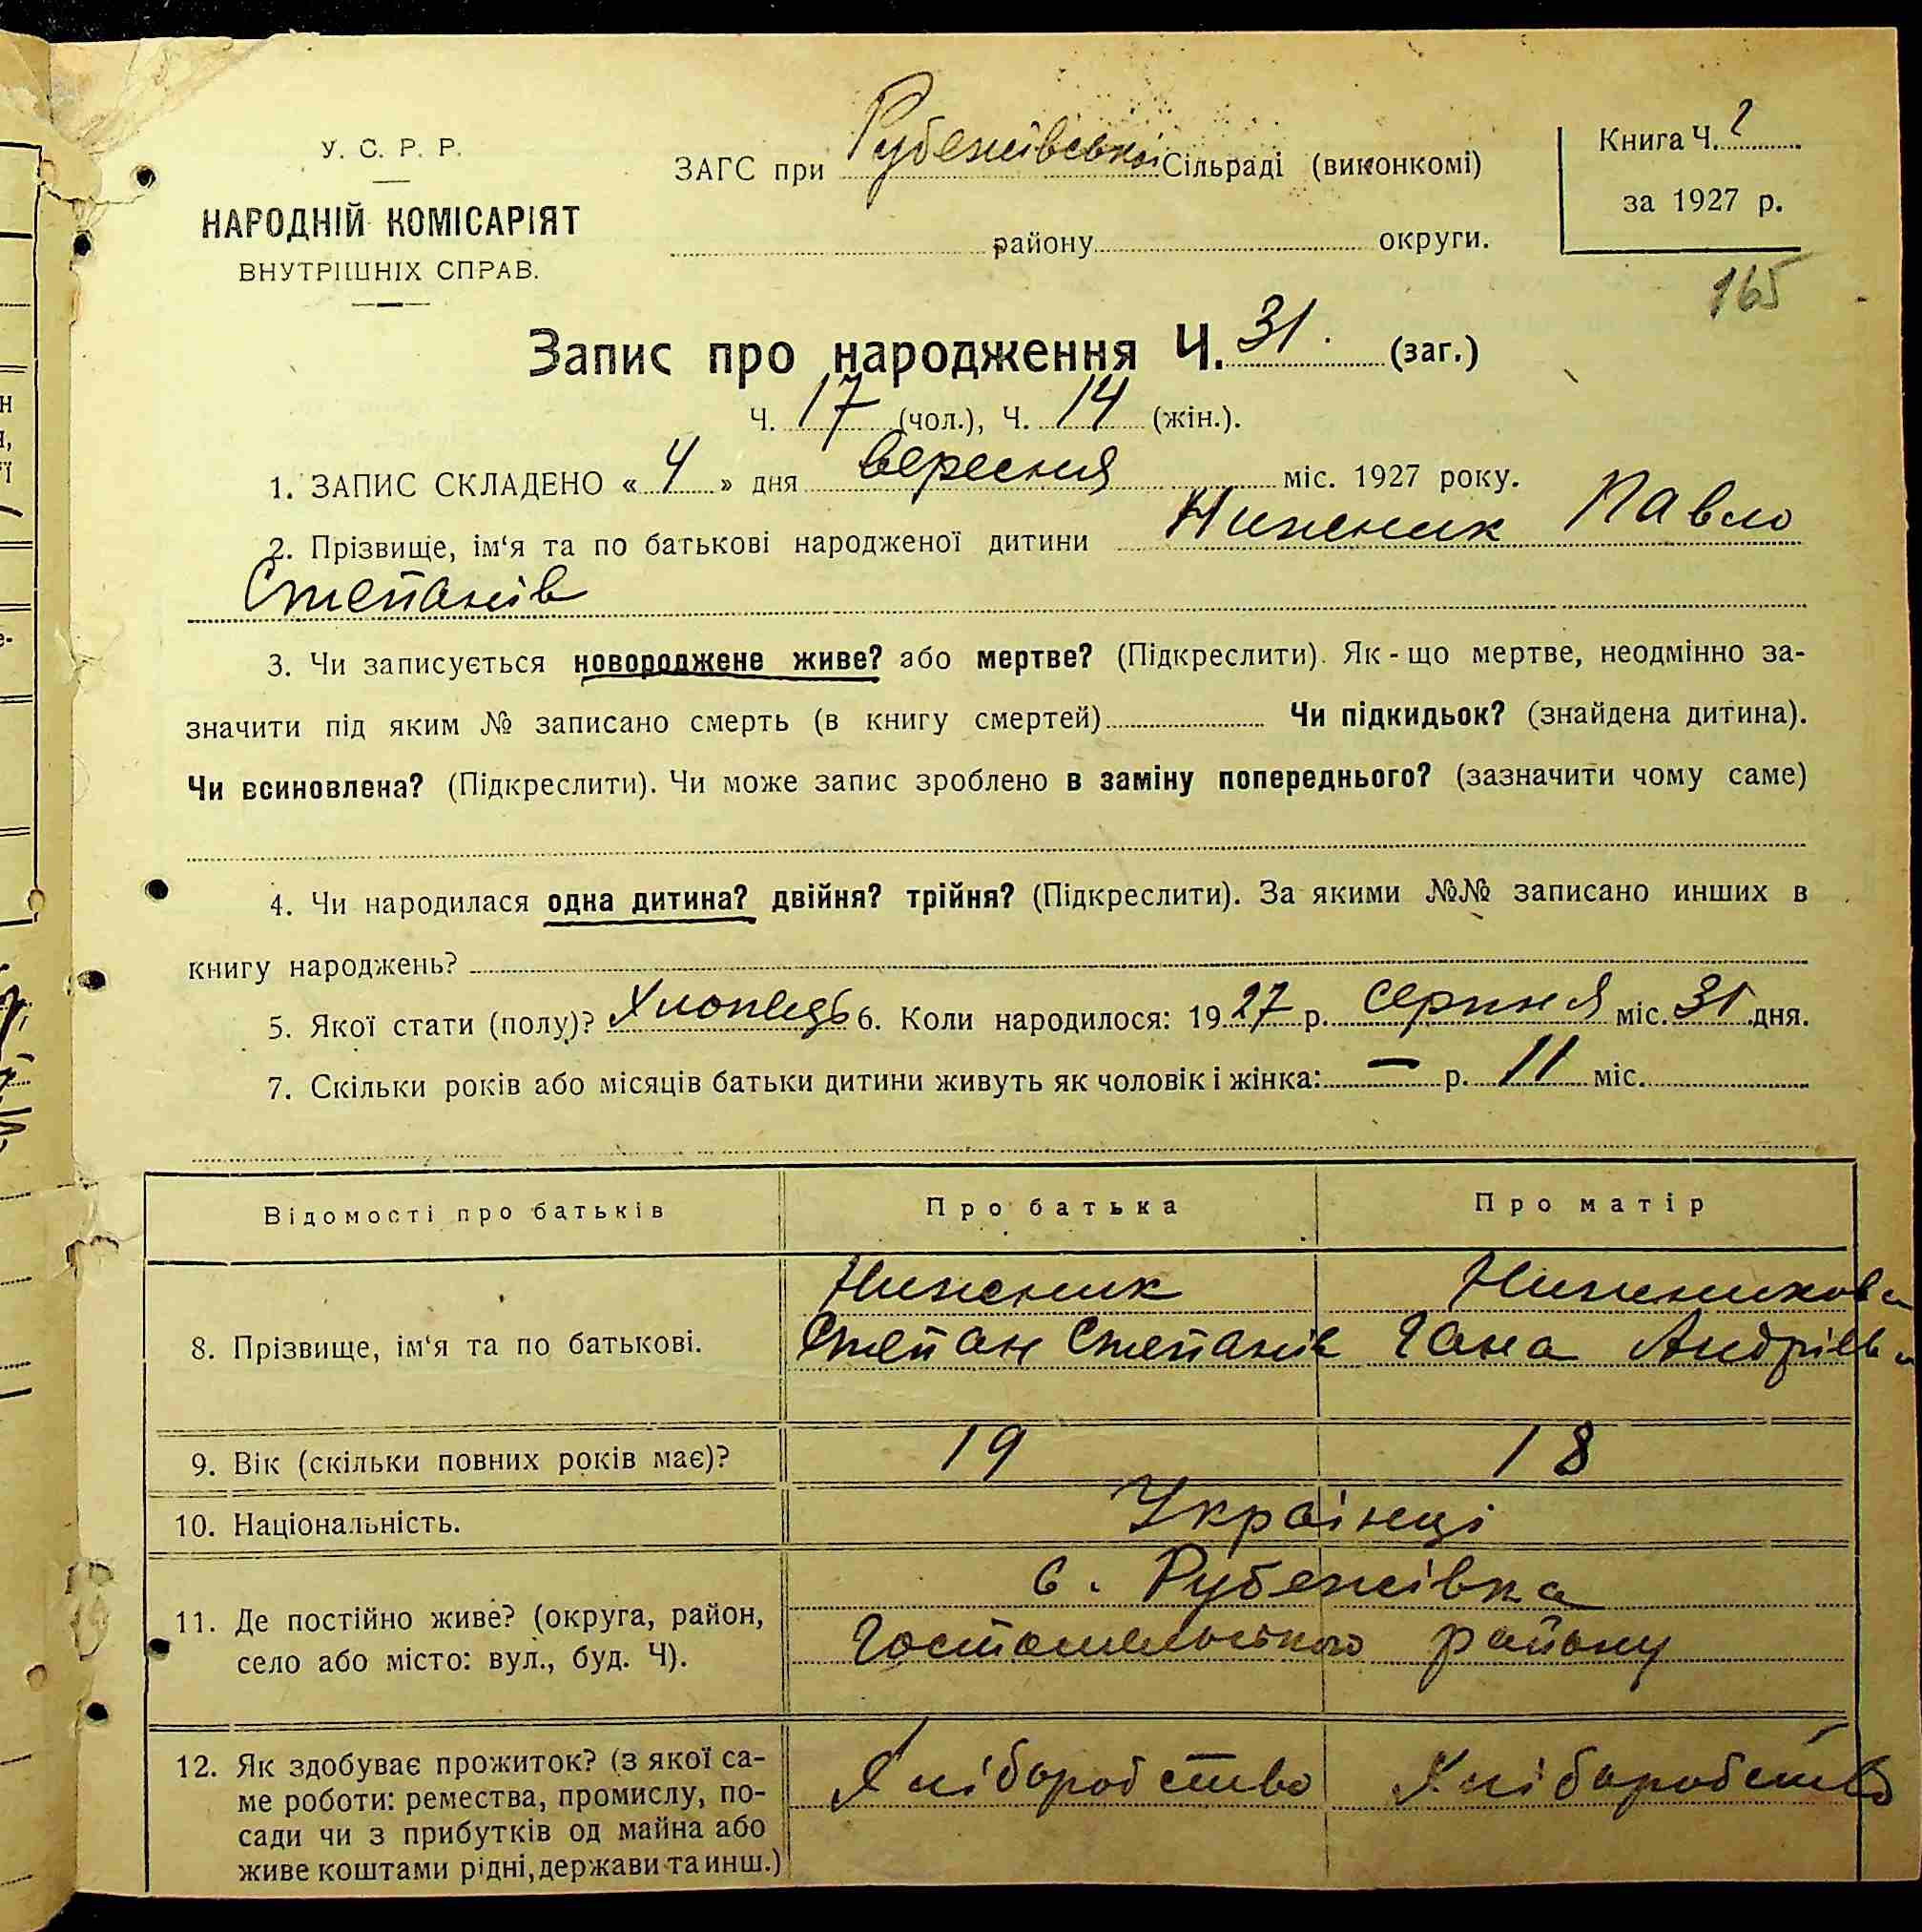 У. С. Р. Р.
НАРОДНІЙ КОМІСАРІЯТ
ВНУТРІШНІХ СПРАВ.
ЗАГС при Рубежівській Сільраді (виконкомі)
району округи.
Книга Ч. 2
за 1927 р.
165
Запис про народження Ч. 31. (заг.)
Ч. 17 (чол.), Ч. 14 (жін.).
1. ЗАПИС СКЛАДЕНО « 4 » дня вересня міс. 1927 року.
2. Прізвище, ім‘я та по батькові народженої дитини Ниженик Павло
Степанів
3. Чи записується новороджене живе? або мертве? (Підкреслити). Як-що мертве, неодмінно за-
значити під яким № записано смерть (в книгу смертей) Чи підкидьок? (знайдена дитина).
Чи всиновлена? (Підкреслити). Чи може запис зроблено в заміну попереднього? (зазначити чому саме)
4. Чи народилася одна дитина? двійня? трійня? (Підкреслити). За якими №№ записано инших в
книгу народжень?
5. Якої стати (полу)? Хлопець 6. Коли народилося: 1927 р. серпня міс. 31 дня.
7. Скільки років або місяців батьки дитини живуть як чоловік і жінка: — р. 11 міс.
Відомості про батьків Про батька Про матір
8. Прізвище, ім‘я та по батькові.
Ниженик Ниженикова
Степан Степанів Гана Андріїв
9. Вік (скільки повних років має)? 19 18
10. Національність. Українці
11. Де постійно живе? (округа, район,
село або місто: вул., буд. Ч).
с. Рубежівка
Гостомельського району
12. Як здобуває прожиток? (з якої са-
ме роботи: ремества, промислу, по-
сади чи з прибутків од майна або
живе коштами рідні, держави та инш.)
Хліборобство Хліборобство